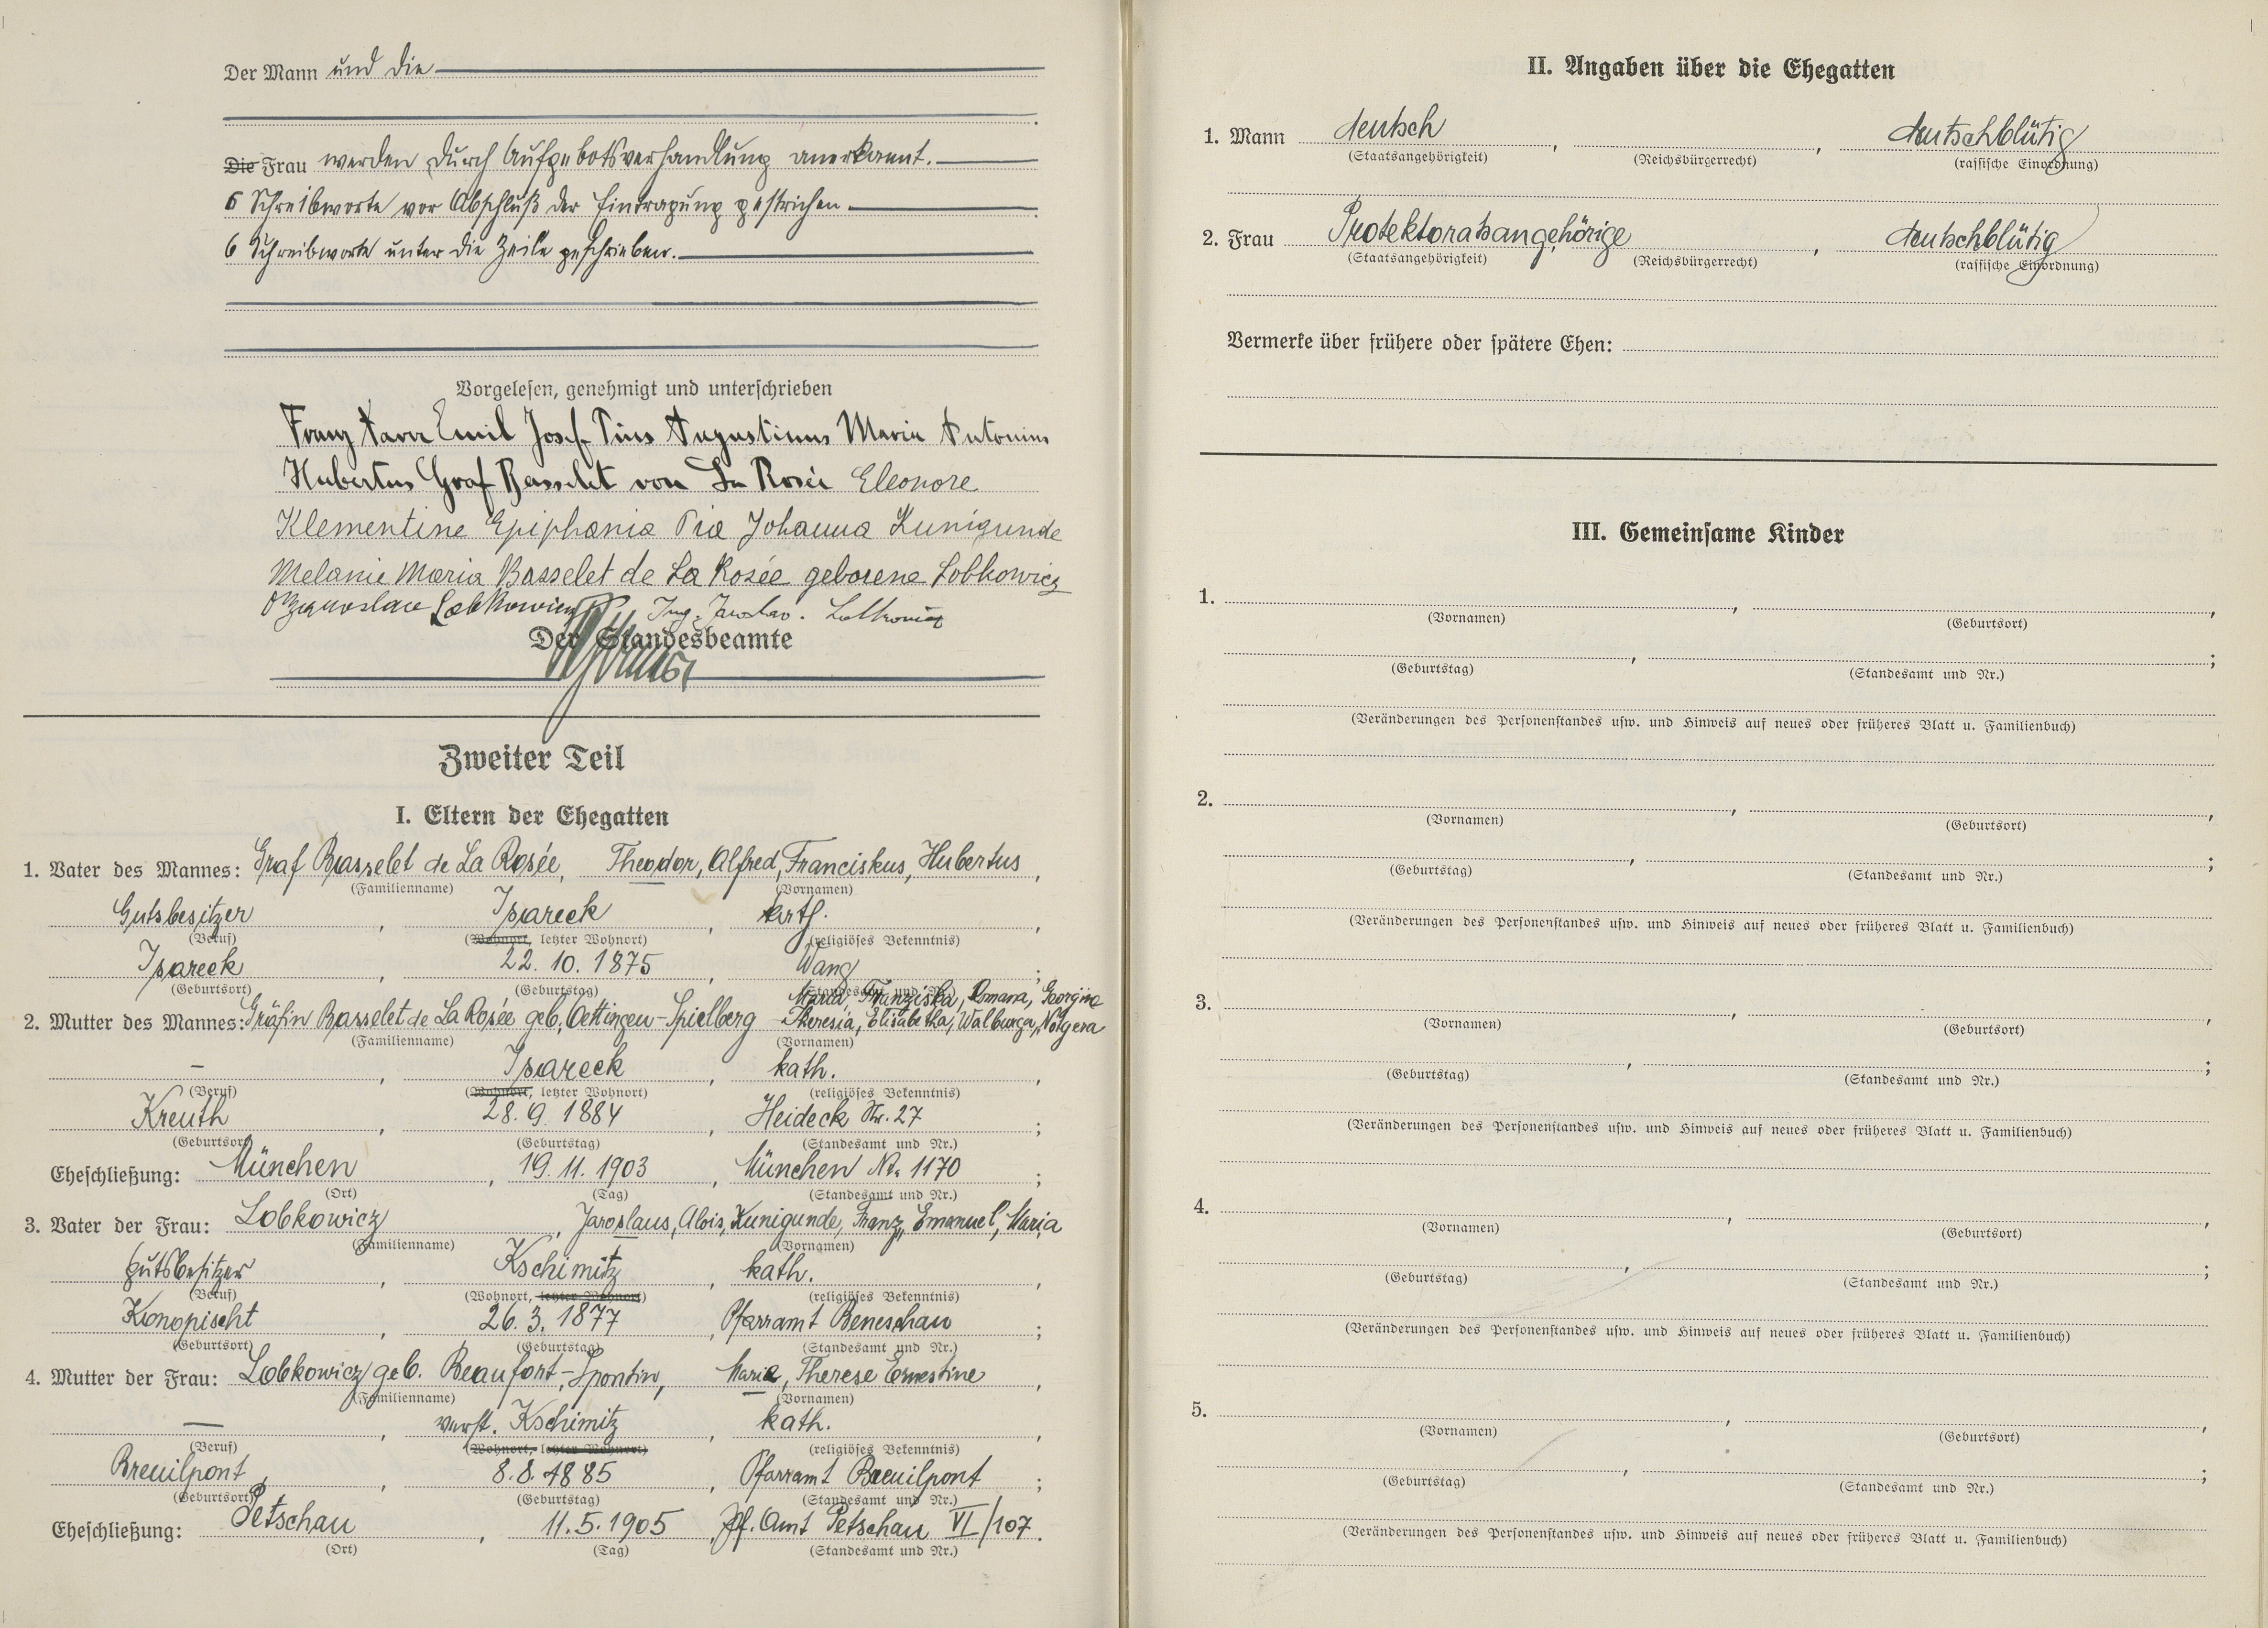 Der Mann und die
Die Frau werden durch Aufgebotsverhandlung anerkannt.
6 Schreibworte vor Abschluß der Eintragung gestrichen
6 Schreibworte unter die Zeile geschrieben.
Vorgelesen, genehmigt und unterschrieben
Franz Xaver Emil Josef Pius Augustinus Maria Antonius
Hubertus Graf Basselet von La Rosée Eleonore
Klementine Epiphania Pia Johanna Kunigunde
Melanie Maria Basselet de La Rosée geborene Lobkowicz
Lobkowicz Ing. Jaroslav. Lobkowicz
Der Standesbeamte
Zweiter Teil
I. Eltern der Ehegatten
1. Vater des Mannes: Graf Basselet de La Rosée, Theodor, Alfred, Franciskus, Hubertus,
(Familienname) (Vornamen)
Gutsbesitzer, Isareck, kath.,
(Beruf) (Wohnort, letzter Wohnort) (religiöses Bekenntnis)
Isareck, 22. 10. 1875, Wang;
(Geburtsort) (Geburtstag) (Standesamt und Nr.)
Maria, Franziska, Romana, Georgine
2. Mutter des Mannes: Gräfin Basselet de La Rosée geb. Oettingen-Spielberg Theresia, Elisabetha, Walburga, Notgera
(Familienname) (Vornamen)
—, Isareck, kath.,
(Beruf) (Wohnort, letzter Wohnort) (religiöses Bekenntnis)
Kreuth, 28. 9. 1884, Heideck Nr. 27;
(Geburtsort) (Geburtstag) (Standesamt und Nr.)
Eheschließung: München, 19. 11. 1903, München Nr. 1170;
(Ort) (Tag) (Standesamt und Nr.)
3. Vater der Frau: Lobkowicz, Jaroslaus, Alois, Kunigunde, Franz, Emanuel, Maria
(Familienname) (Vornamen)
Gutsbesitzer, Kschimitz, kath.,
(Beruf) (Wohnort, letzter Wohnort) (religiöses Bekenntnis)
Konopischt, 26. 3. 1877, Pfarramt Beneschau;
(Geburtsort) (Geburtstag) (Standesamt und Nr.)
4. Mutter der Frau: Lobkowicz geb. Beaufort-Spontin, Maria, Therese Ernestine,
(Familienname) (Vornamen)
—, verst. Kschimitz, kath.,
(Beruf) (Wohnort, letzter Wohnort) (religiöses Bekenntnis)
Breuilpont, 8. 8. 1885, Pfarramt Breuilpont;
(Geburtsort) (Geburtstag) (Standesamt und Nr.)
Eheschließung: Petschau, 11. 5. 1905, Pf. Amt Petschau VI/107.
(Ort) (Tag) (Standesamt und Nr.)
II. Angaben über die Ehegatten
1. Mann deutsch, , deutschblütig
(Staatsangehörigkeit) (Reichsbürgerrecht) (rassische Einordnung)
2. Frau Protektoratsangehörige, deutschblütig
(Staatsangehörigkeit) (Reichsbürgerrecht) (rassische Einordnung)
Vermerke über frühere oder spätere Ehen:
III. Gemeinsame Kinder
1. , ,
(Vornamen) (Geburtsort)
, ;
(Geburtstag) (Standesamt und Nr.)
(Veränderungen des Personenstandes usw. und Hinweis auf neues oder früheres Blatt u. Familienbuch)
2. , ,
(Vornamen) (Geburtsort)
, ;
(Geburtstag) (Standesamt und Nr.)
(Veränderungen des Personenstandes usw. und Hinweis auf neues oder früheres Blatt u. Familienbuch)
3. , ,
(Vornamen) (Geburtsort)
, ;
(Geburtstag) (Standesamt und Nr.)
(Veränderungen des Personenstandes usw. und Hinweis auf neues oder früheres Blatt u. Familienbuch)
4. , ,
(Vornamen) (Geburtsort)
, ;
(Geburtstag) (Standesamt und Nr.)
(Veränderungen des Personenstandes usw. und Hinweis auf neues oder früheres Blatt u. Familienbuch)
5. , ,
(Vornamen) (Geburtsort)
, ;
(Geburtstag) (Standesamt und Nr.)
(Veränderungen des Personenstandes usw. und Hinweis auf neues oder früheres Blatt u. Familienbuch)